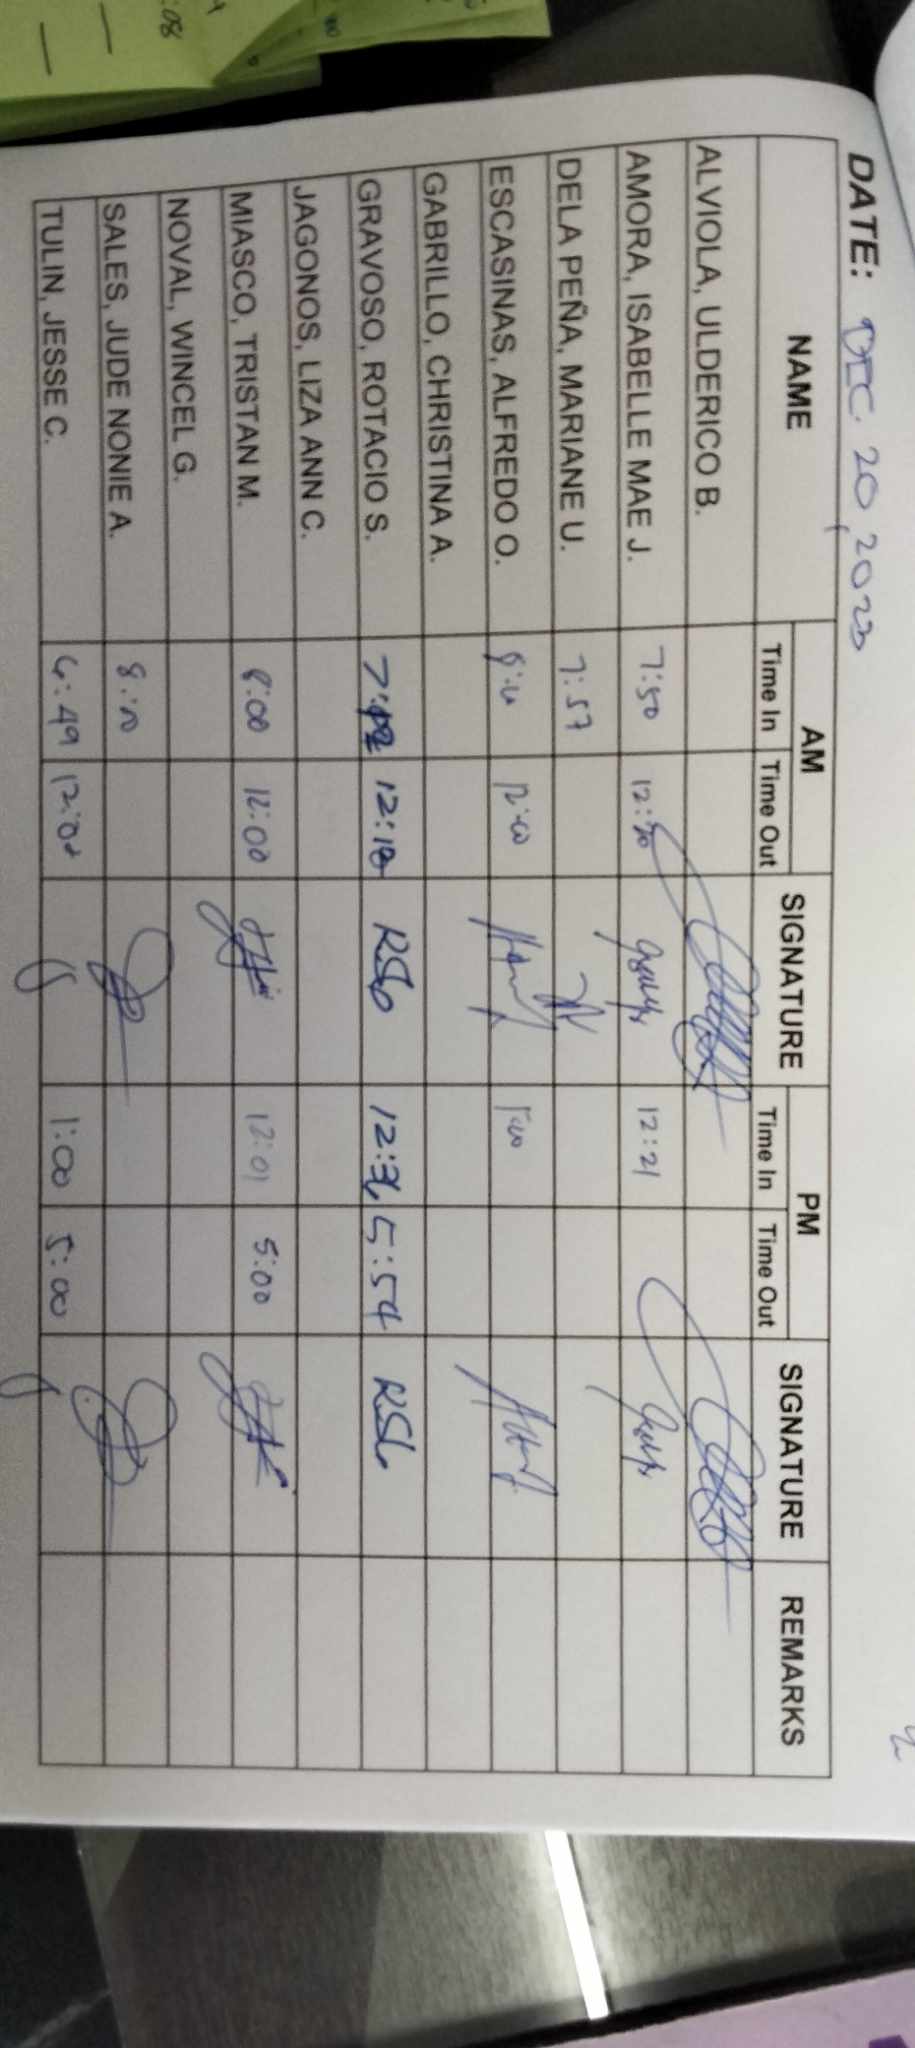 DATE: DEC. 20, 2023
NAME AM SIGNATURE PM SIGNATURE REMARKS
Time In Time Out Time In Time Out
ALVIOLA, ULDERICO B.
AMORA, ISABELLE MAE J. 7:50 12:20 12:21
DELA PEÑA, MARIANE U. 7:57
ESCASINAS, ALFREDO O. 12:00 1:00
GABRILLO, CHRISTINA A.
GRAVOSO, ROTACIO S. 12:18 RSG 12:36 5:54 RSG
JAGONOS, LIZA ANN C.
MIASCO, TRISTAN M. 8:00 12:00 12:01 5:00
NOVAL, WINCEL G.
SALES, JUDE NONIE A.
TULIN, JESSE C. 6:49 12:02 1:00 5:00